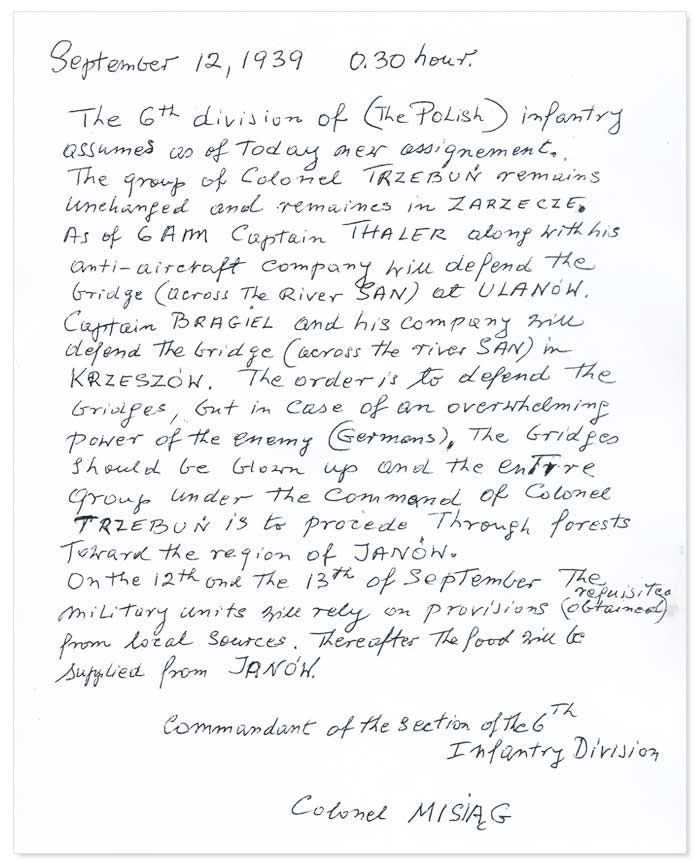 September 12, 1939 0.30 hour.
The 6th division of (The Polish) infantry
assumes as of Today new assignement.
The group of Colonel TRZEBUŃ remains
unchanged and remaines in ZARZECZE.
As of 6 AM Captain THALER along with his
anti-aircraft company will defend the
bridge (across The River SAN) at ULANÓW.
Captain BRAGIEL and his company will
defend The bridge (across the river SAN) in
KRZESZÓW. The order is to defend the
bridges, but in case of an overwhelming
power of the enemy (Germans), The bridges
should be blown up and the entire
group under the Command of Colonel
TRZEBUŃ is to procede Through forests
Toward the region of JANÓW.
On the 12th and The 13th of September The
requisited
military units will rely on provisions (obtained)
from local sources. Thereafter The food will be
supplied from JANÓW.
Commandant of the section of the 6Th
Infantry Division
Colonel MISIĄG